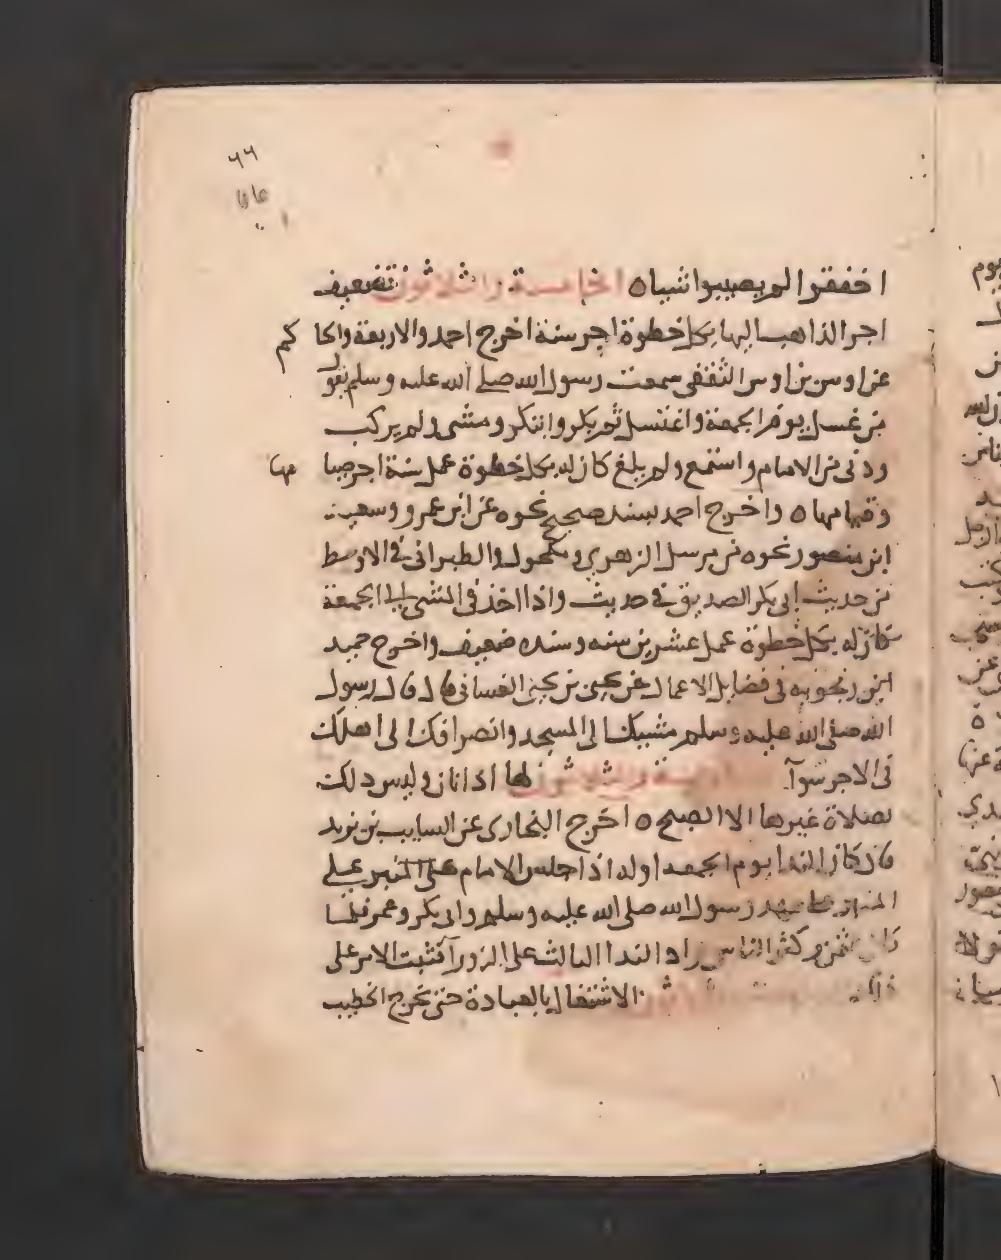 ٦٦
اخفقوا لم يصيبوا شيا ه الخامسة والثلاثون تضعيف
اجر الذاهب اليها بكل خطوة اجر سنة اخرج احمد والاربعة والحاكم
عن اوس بن اوس الثقفي سمعت رسول الله صلى الله عليه وسلم يقول
من غسل يوم الجمعة واغتسل ثم بكر وابتكر ومشى ولم يركب
ودنى من الامام واستمع ولم يلغ كان له بكل خطوة عمل سنة اجر صيامها
وقيامها ه واخرج احمد بسند صحيح نحوه عن ابن عمرو وسعيد
ابن منصور نحوه من مرسل الزهري ومكحول والطبراني في الاوسط
من حديث ابي بكر الصديق في حديث واذا اخذ في المشي الى الجمعة
كان له بكل خطوة عمل عشرين سنه وسنده ضعيف واخرج حميد
ابن زنجويه في فضايل الاعمال عن يحيى بن يحيى الغساني قال قال رسول
الله صلى الله عليه وسلم مشيك الى المسجد وانصرافك الى اهلك
في الاجر سوآ والثلاثون لها اذانان وليس ذلك
لصلاة غيرها الا الصبح ه اخرج البخاري عن السايب بن يزيد
قال كان الندا يوم الجمعه اوله اذا جلس الامام على المنبر على
المنبر على عهد رسول الله صلى الله عليه وسلم وابي بكر وعمر فلما
كان عثمن وكثر الناس زاد الندا الثالث على الزورآ فثبت الامر على
ذلك الاشتغال بالعبادة حتى يخرج الخطيب